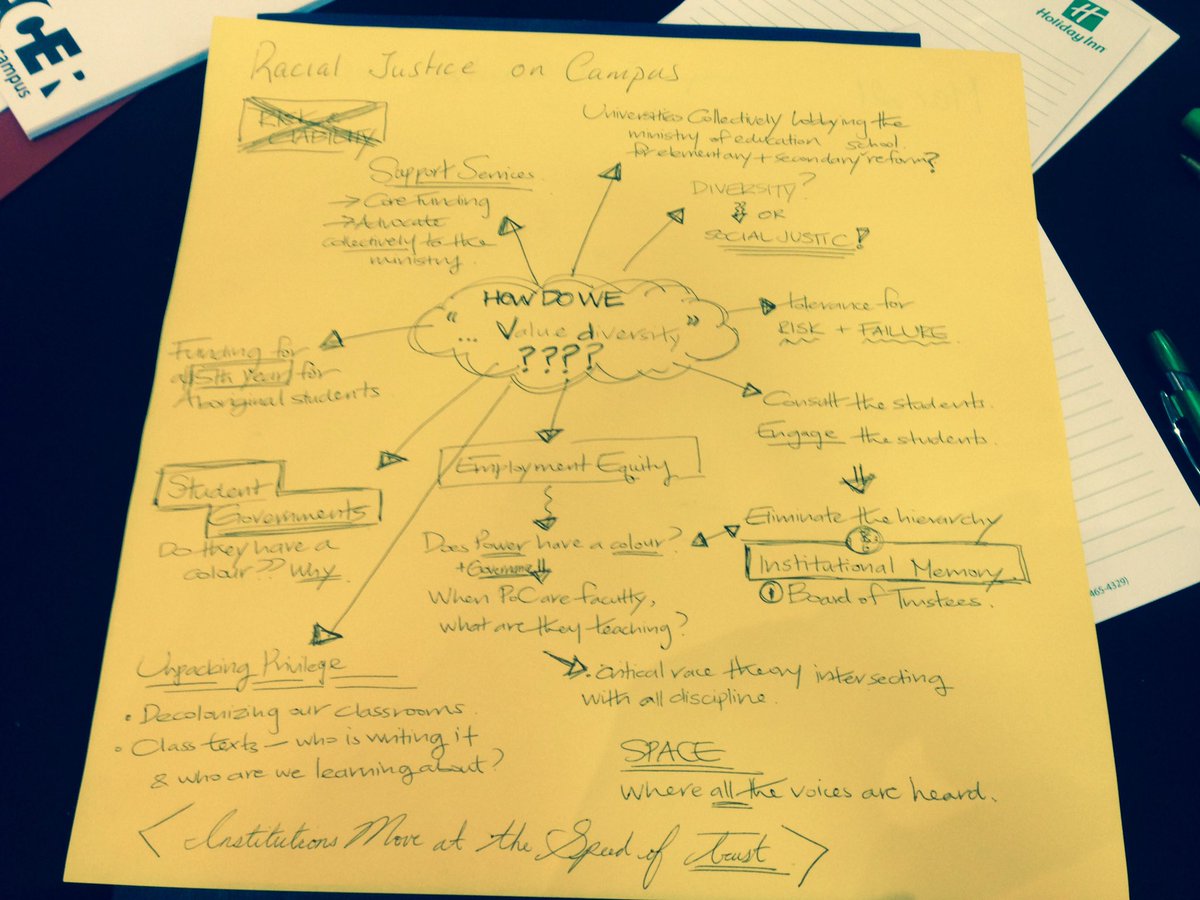 CE
campus
Holiday Inn
Racial Justice on Campus
RISK &
LIABILITY
Universities Collectively lobbying the
ministry of education school
for elementary + secondary reform?
Support Services
→ Core Funding
→ Advocate
collectively to the
ministry.
DIVERSITY?
OR
SOCIAL JUSTIC!
HOW DO WE
"... Value diversity"
????
tolerance for
RISK + FAILURE.
Funding for
a 5th year for
Aboriginal students
Consult the students.
Engage the students.
Employment Equity
Student
Governments
Do they have a
colour?? Why
Does Power have a colour?
+ Governance
When PoC are faculty,
what are they teaching?
Eliminate the hierarchy
Institutional Memory.
① Board of Trustees.
465-4329)
• critical race theory intersecting
with all discipline.
Unpacking Privilege
• Decolonizing our classrooms.
• Class texts – who is writing it
& who are we learning about?
SPACE
where all the voices are heard.
< Institutions Move at the Speed of trust. >